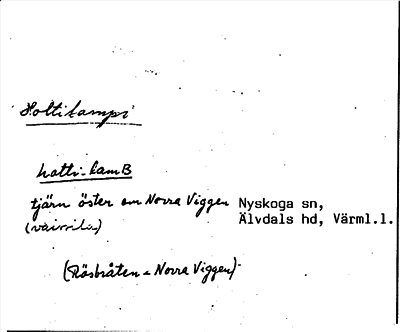 Holtilampi
holti-lamB
tjärn öster om Norra Viggen Nyskoga sn,
(väinsilä) Älvdals hd, Värml.l.
(Rösbråten - Norra Viggen)